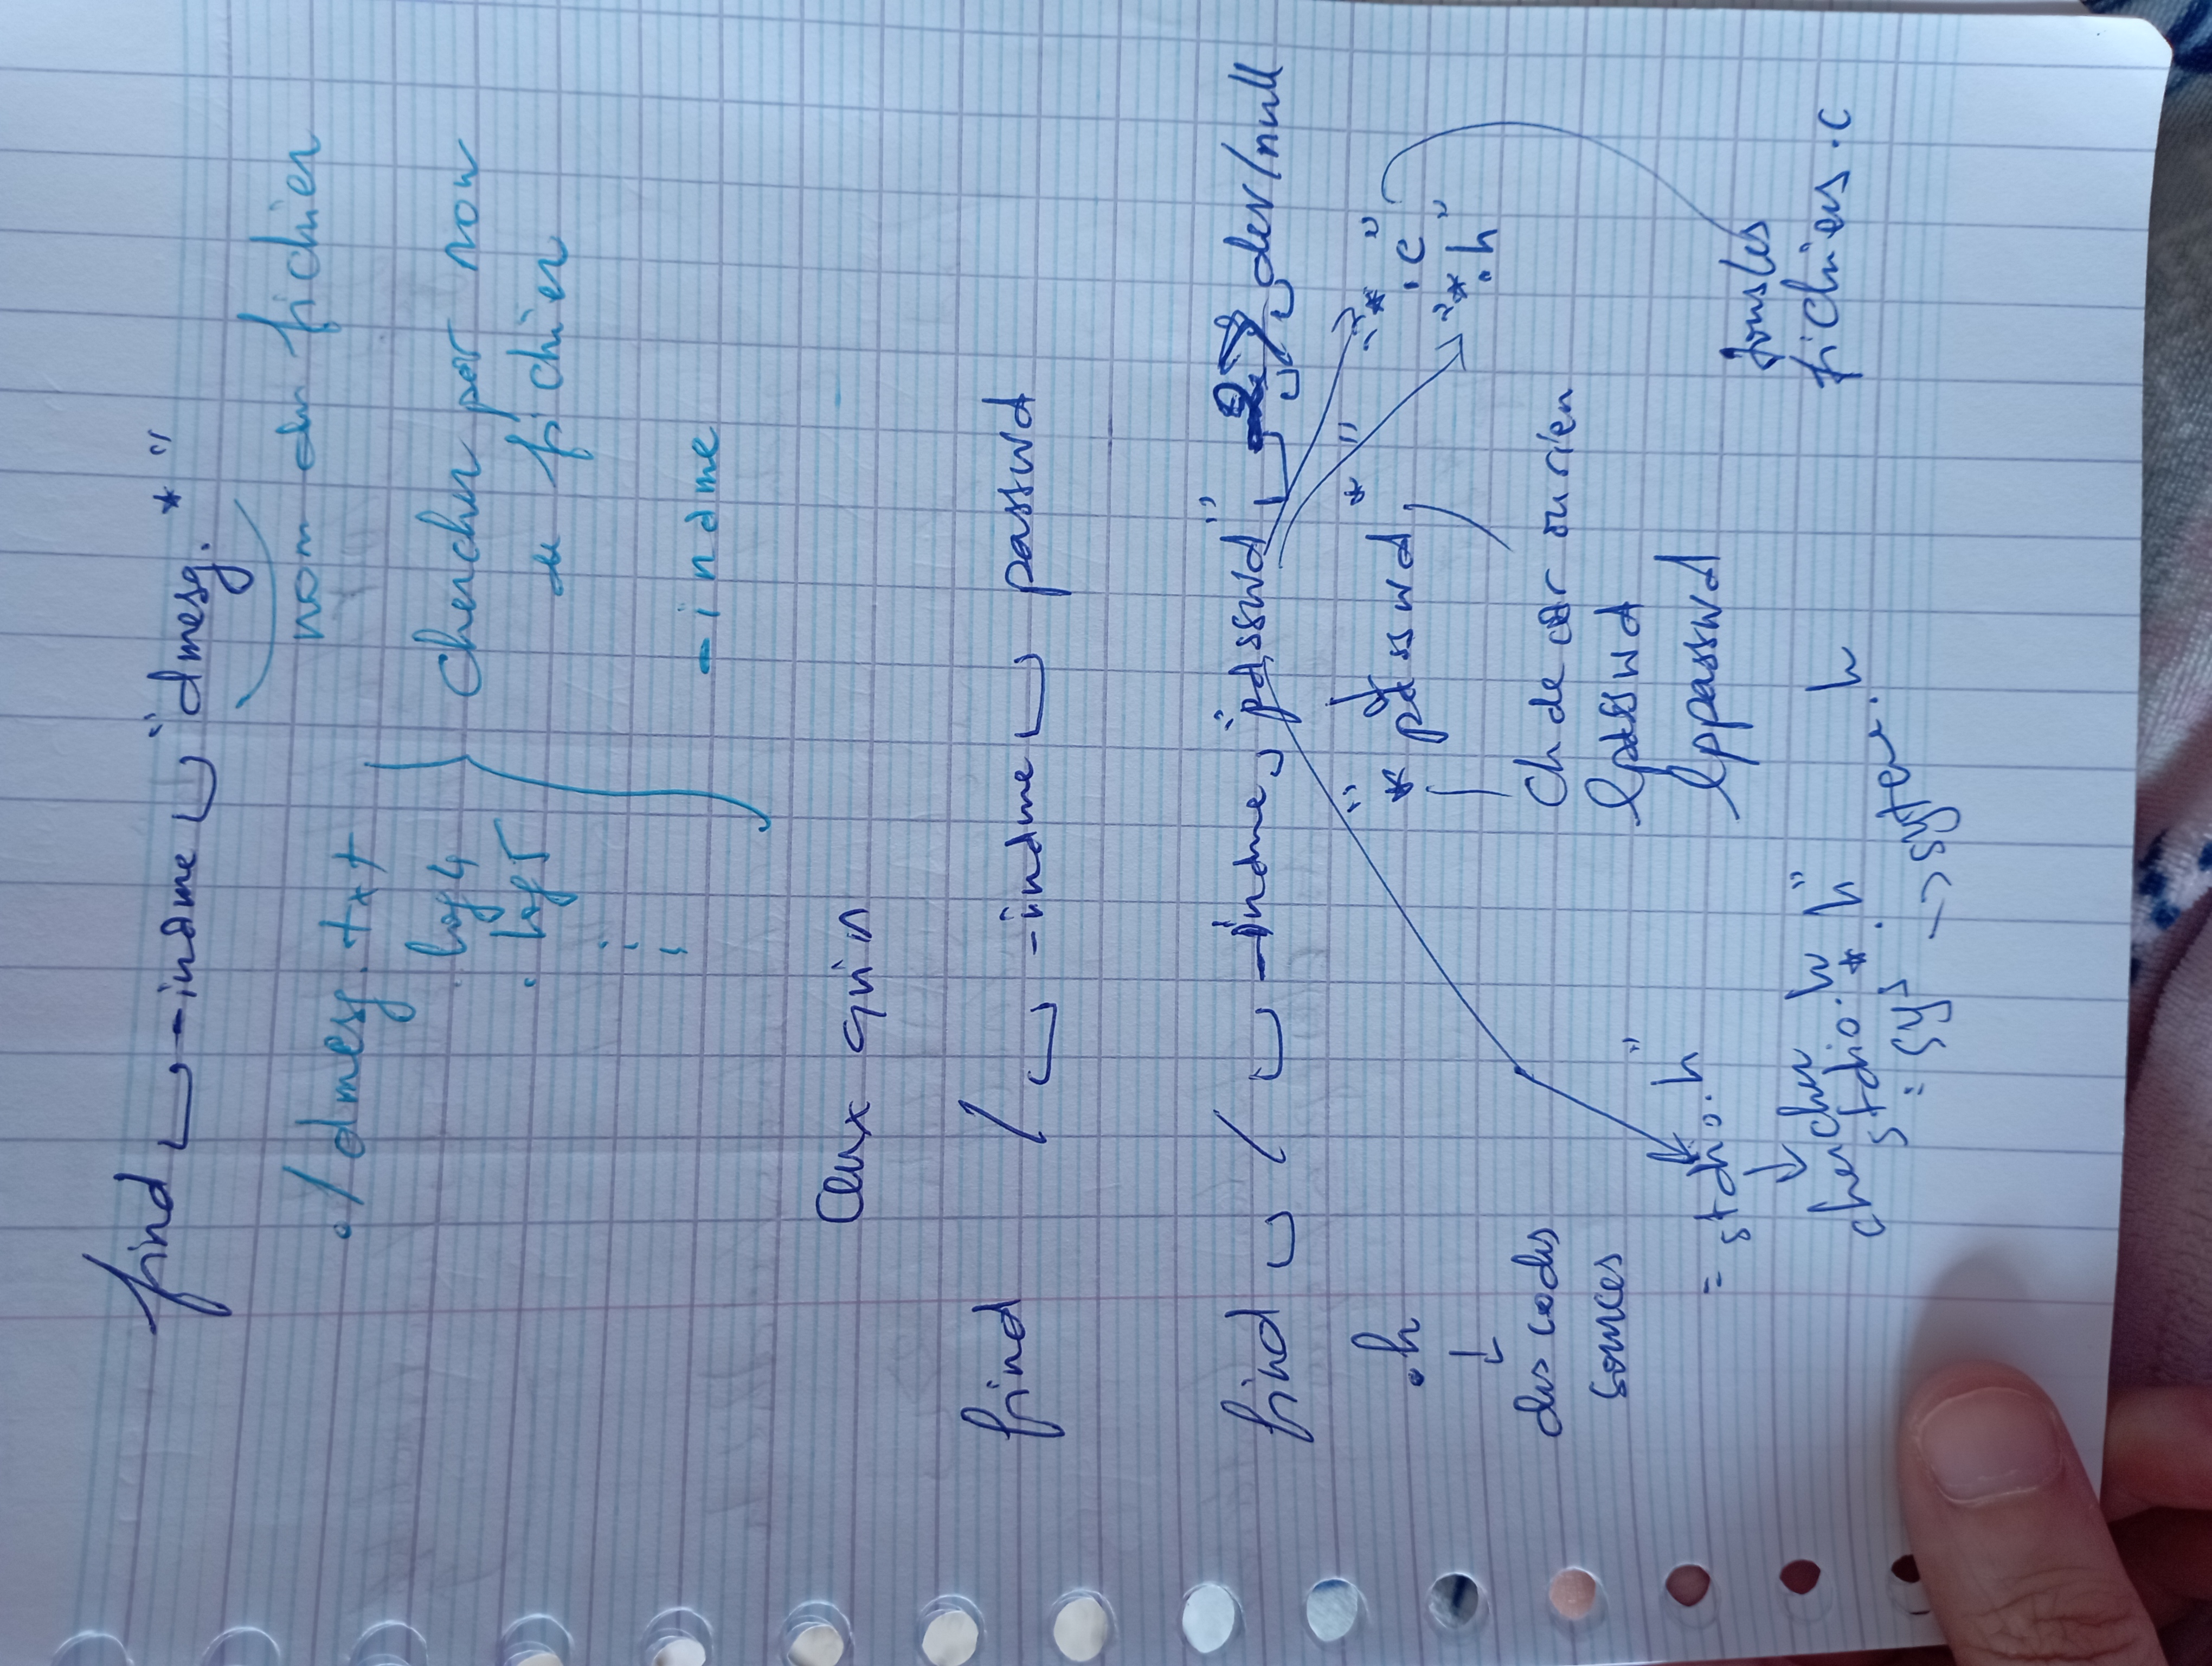 find ␣ -iname ␣ "dmesg.*"
nom du fichier
./dmesg.txt
.log4
.log5
chercher par nom
de fichier
-iname
Ceux qui n
find / ␣ -iname ␣ passwd
find ␣ / ␣ -iname ␣ "passwd" ␣ 2 ␣ > ␣ dev/null
.h
des codes
sources
"*passwd*"
"*.c"
"*.h"
Ch de car ou rien
lpasswd
lppasswd
"stdio.h"
chercher
stdio.h
"sys*.h" -> systeme.h
tous les
fichiers .c